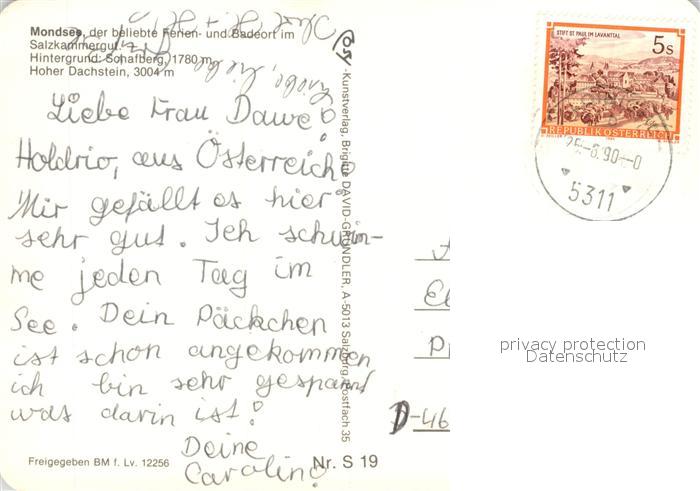 Mondsee, der beliebte Ferien- und Badeort im
Salzkammergut.
Hintergrund: Schafberg, 1780 m
Hoher Dachstein, 3004 m
Liebe Frau Dawe!
Holdrio, aus Österreich!
Mir gefällt es hier
sehr gut. Ich schwim-
me jeden Tag im
See. Dein Päckchen
ist schon angekommen
ich bin sehr gespannt
was darin ist!
Deine
Carolin!
Freigegeben BM f. Lv. 12256
Nr. S 19
-Kunstverlag, Brigitte DAVID-GRÜNDLER, A-5013 Salzburg, Postfach 35
STIFT ST. PAUL IM LAVANTTAL
5s
REPUBLIK ÖSTERREICH
5311
D-46
privacy protection
Datenschutz